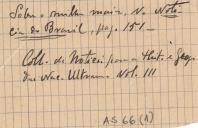 Sobre o milho maiz, V. Noti-
cia do Brazil, pag. 151.
Coll. de Noticias para a Hist. e Geog.
das Nac. Ultram. Vol. III
AS 66 (1)